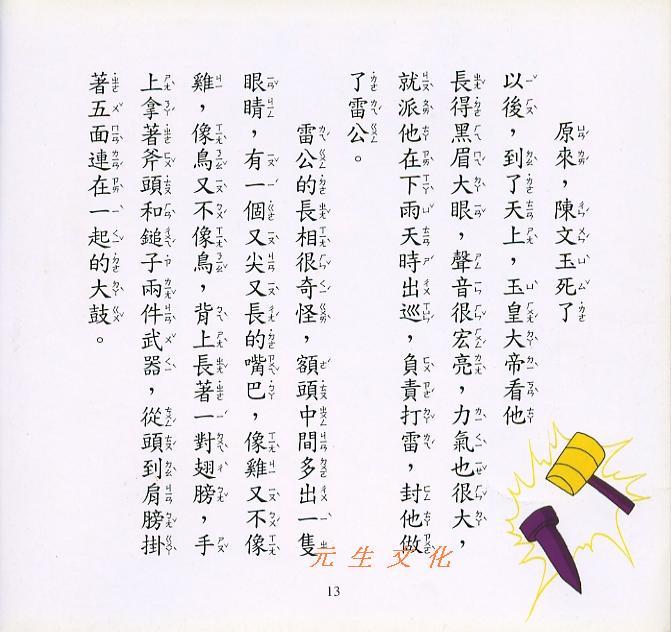 原來，陳文玉死了
以後，到了天上，玉皇大帝看他
長得黑眉大眼，聲音很宏亮，力氣也很大，
就派他在下雨天時出巡，負責打雷，封他做
了雷公。
雷公的長相很奇怪，額頭中間多出一隻
眼睛，有一個又尖又長的嘴巴，像雞又不像
雞，像鳥又不像鳥，背上長著一對翅膀，手
上拿著斧頭和鎚子兩件武器，從頭到肩膀掛
著五面連在一起的大鼓。
元生文化
13